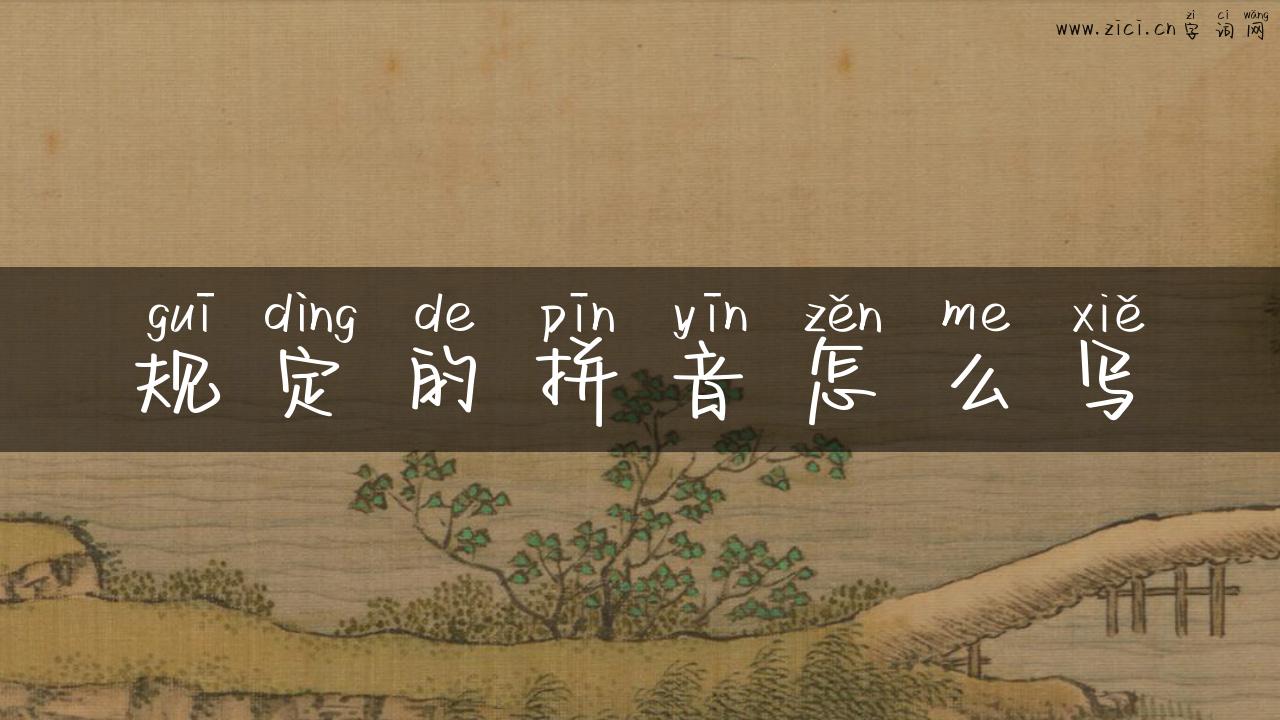 zì cí wǎng
www.zici.cn 字 词 网
guī dìng de pīn yīn zěn me xiě
规 定 的 拼 音 怎 么 写